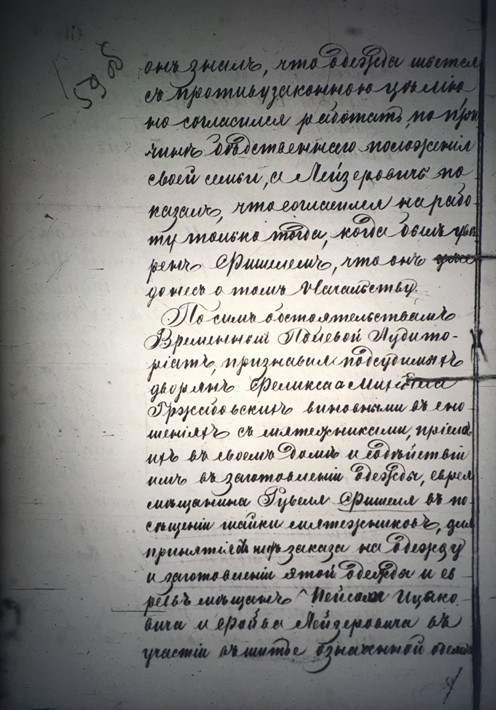 59 об
онъ зналъ, что одежда шьется
съ противузаконною цѣлію
но согласился работать, по при-
чинѣ бѣдственнаго положенія
своей семьи, а Лейзеровичъ по
казалъ, что согласился на рабо-
ту только тогда, когда былъ увѣ
ренъ Фишелемъ, что онъ
донесъ о томъ начальству.
По симъ обстоятельствамъ
Временный Полевой Аудито-
ріатъ, признавая подсудимыхъ
дворянъ Феликса а
Гржибовскихъ виновными въ сно-
шеніяхъ съ мятежниками, пріемѣ
ихъ въ своемъ домѣ и содѣйствіи
имъ въ заготовленіи одежды, еврея
мѣщанина Гувеля Фишеля въ по-
сѣщеніи шайки мятежниковъ, для
принятія заказа на одежду
и заготовленіи этой одежды и ев-
реевъ мѣщанъ Ицко-
вича и Лейзеровича въ
участіи въ шитьѣ означенной одеж